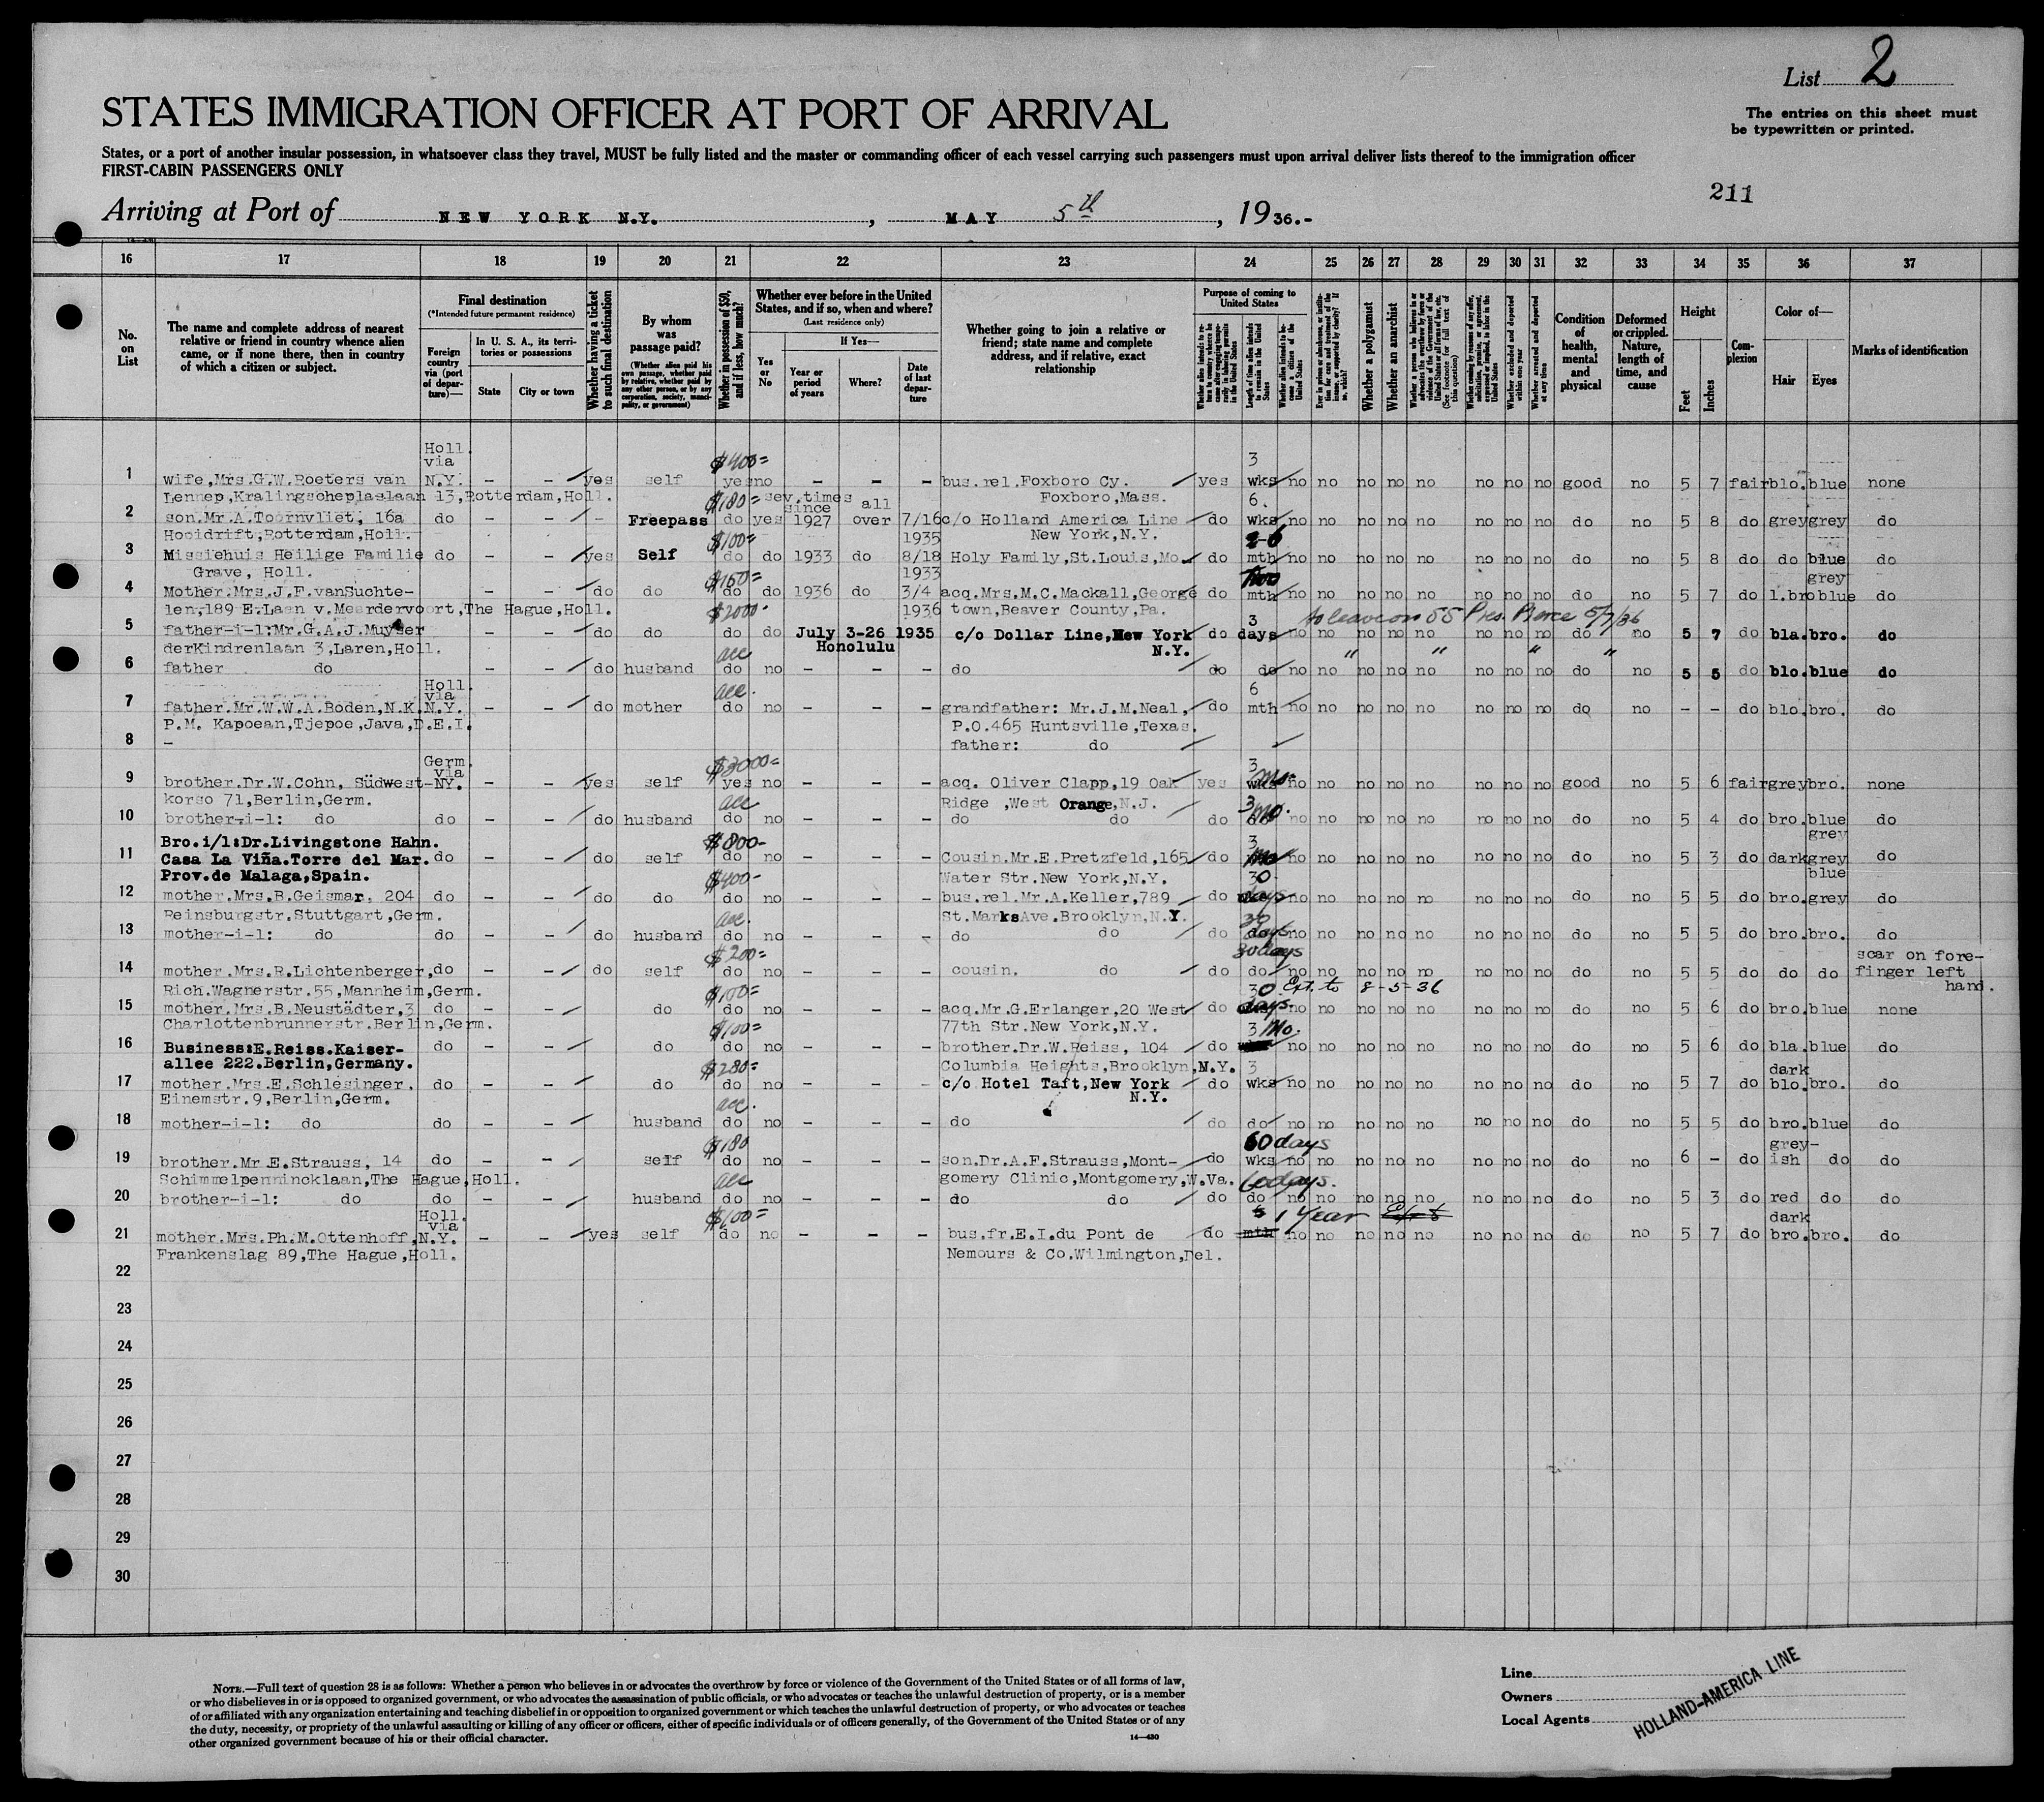 List 2
The entries on this sheet must
be typewritten or printed.
STATES IMMIGRATION OFFICER AT PORT OF ARRIVAL
States, or a port of another insular possession, in whatsoever class they travel, MUST be fully listed and the master or commanding officer of each vessel carrying such passengers must upon arrival deliver lists thereof to the immigration officer
FIRST-CABIN PASSENGERS ONLY
211
Arriving at Port of NEW YORK N.Y., MAY 5th, 1936.-
16 17 18 19 20 21 22 23 24 25 26 27 28 29 30 31 32 33 34 35 36 37
No. on List
The name and complete address of nearest relative or friend in country whence alien came, or if none there, then in country of which a citizen or subject.
Final destination
(*Intended future permanent residence)
Foreign country via (port of departure)—
In U. S. A., its territories or possessions
State
City or town
Whether having a ticket to such final destination
By whom was passage paid?
(Whether alien paid his own passage, whether paid by relative, whether paid by any other person, or by any corporation, society, municipality, or government)
Whether in possession of $50, and if less, how much?
Whether ever before in the United States, and if so, when and where?
(Last residence only)
Yes or No
If Yes—
Year or period of years
Where?
Date of last departure
Whether going to join a relative or friend; state name and complete address, and if relative, exact relationship
Purpose of coming to United States
Length of time alien intends to remain in the United States
Whether alien intends to become a citizen of the United States
Whether a polygamist
Whether an anarchist
(See footnote for full text of this question)
Whether excluded and deported within one year
Whether arrested and deported at any time
Condition of health, mental and physical
Deformed or crippled. Nature, length of time, and cause
Height
Feet
Inches
Complexion
Color of—
Hair
Eyes
Marks of identification
Holl. via $400= 3
1 wife,Mrs.G.W.Roeters van N.Y. - - yes self yes no - - - bus.rel.Foxboro Cy. yes wks no no no no no no no no good no 5 7 fair blo. blue none
Lennep,Kralingscheplaslaan 13,Rotterdam,Holl. $180= sev.times since all Foxboro,Mass. 6.
2 son.Mr.A.Toornvliet, 16a do - - - Freepass do yes 1927 over 7/16 c/o Holland America Line do wks no no no no no no no no do no 5 8 do grey grey do
Hooidrift,Rotterdam,Holl. $100= 1935 New York,N.Y. 2-6
3 Missiehuis Heilige Familie do - - yes Self do do 1933 do 8/18 Holy Family,St.Louis,Mo. do mth no no no no no no no no do no 5 8 do do blue do
Grave, Holl. $150= 1933 Two grey
4 Mother.Mrs.J.F.vanSuchte- - - do do do do 1936 do 3/4 acq.Mrs.M.C.Mackall,George do mth no no no no no no no no do no 5 7 do l.bro blue do
len,189 E.Laan v.Meerdervoort,The Hague,Holl. $2000- 1936 town,Beaver County,Pa. 3 to leave on SS Pres. Pierce 5/7/36
5 father-i-l:Mr.G.A.J.Muyser - - do do do do July 3-26 1935 c/o Dollar Line,New York do days no no no no no no no no do no 5 7 do bla. bro. do
derKindrenlaan 3,Laren,Holl. acc Honolulu N.Y. " " " "
6 father do - - do husband do no - - - do do do no no no no no no no no do no 5 5 do blo. blue do
Holl. via acc. 6
7 father.Mr.W.W.A.Boden,N.K. N.Y. - - do mother do no - - - grandfather: Mr.J.M.Neal, do mth no no no no no no no no do no - - do blo. bro. do
P.M. Kapoean,Tjepoe,Java,D.E.I. P.O.465 Huntsville,Texas.
8 - father: do
Germ. via $3000= 3
9 brother.Dr.W.Cohn, Südwest- NY. - - yes self yes no - - - acq. Oliver Clapp,19 Oak yes wks mo. no no no no no no no no good no 5 6 fair grey bro. none
korso 71,Berlin,Germ. acc Ridge ,West Orange,N.J. 3 mo.
10 brother-i-l: do do - - do husband do no - - - do do do do no no no no no no no no do no 5 4 do bro. blue do
Bro.i/l:Dr.Livingstone Hahn. $800- 3 grey
11 Casa La Viña.Torre del Mar. do - - do self do no - - - Cousin.Mr.E.Pretzfeld,165 do Mo no no no no no no no no do no 5 3 do dark grey do
Prov.de Malaga,Spain. $400- Water Str.New York,N.Y. 30. blue
12 mother.Mrs.B.Geismar, 204 do - - do do do no - - - bus.rel.Mr.A.Keller,789 do days no no no no no no no no do no 5 5 do bro. grey do
Reinsburgstr.Stuttgart,Germ. acc. St.MarksAve.Brooklyn,N.Y. 30
13 mother-i-l: do do - - do husband do no - - - do do do days no no no no no no no no do no 5 5 do bro. bro. do
$200= 30 days scar on fore-
14 mother.Mrs.R.Lichtenberger, do - - do self do no - - - cousin. do do do no no no no no no no no do no 5 5 do do do finger left
Rich.Wagnerstr.55,Mannheim,Germ. $100= 30 Ext. to 8-5-36 hand.
15 mother.Mrs.B.Neustädter,3 do - - do do no - - - acq.Mr.G.Erlanger,20 West do days. no no no no no no no no do no 5 6 do bro. blue none
Charlottenbrunnerstr.Berlin,Germ. $100= 77th Str.New York,N.Y. 3 Mo.
16 Business:E.Reiss.Kaiser- do - - do do no - - - brother.Dr.W.Reiss, 104 do no no no no no no no no do no 5 6 do bla. blue do
allee 222.Berlin,Germany. $280= Columbia Heights,Brooklyn,N.Y. 3 dark
17 mother.Mrs.E.Schlesinger. do - - do do no - - - c/o Hotel Taft,New York do wks no no no no no no no no do no 5 7 do blo. bro. do
Einemstr.9,Berlin,Germ. acc. N.Y.
18 mother-i-l: do do - - husband do no - - - do do do no no no no no no no no do no 5 5 do bro. blue do
$180 60 days grey-
19 brother.Mr.E.Strauss, 14 do - - self do no - - - son.Dr.A.F.Strauss,Mont- do wks no no no no no no no no do no 6 - do ish do do
Schimmelpennincklaan,The Hague,Holl. acc gomery Clinic,Montgomery,W.Va. 60 days.
20 brother-i-l: do do - - husband do no - - - do do do do no no no no no no no no do no 5 3 do red do do
Holl. via $100= 1 Year dark
21 mother.Mrs.Ph.M.Ottenhoff, N.Y. - - yes self do no - - - bus.fr.E.I.du Pont de do mth no no no no no no no no do no 5 7 do bro. bro. do
Frankenslag 89,The Hague,Holl. Nemours & Co.Wilmington,Del.
22
23
24
25
26
27
28
29
30
NOTE.—Full text of question 28 is as follows: Whether a person who believes in or advocates the overthrow by force or violence of the Government of the United States or of all forms of law,
or who disbelieves in or is opposed to organized government, or who advocates the assassination of public officials, or who advocates or teaches the unlawful destruction of property, or is a member
of or affiliated with any organization entertaining and teaching disbelief in or opposition to organized government or which teaches the unlawful destruction of property, or who advocates or teaches
the duty, necessity, or propriety of the unlawful assaulting or killing of any officer or officers, either of specific individuals or of officers generally, of the Government of the United States or of any
other organized government because of his or their official character.
14—430
Line
Owners
Local Agents
HOLLAND-AMERICA LINE